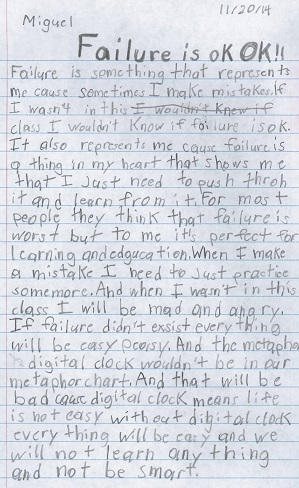 11/20/14
Miguel
Failure is OK OK!!
Failure is something that represents
me cause sometimes I make mistakes. If
I wasn't in this I wouldn't knew if
class I wouldn't know if failure is ok.
It also represents me cause failure is
a thing in my heart that shows me
that I just need to push throh
it and learn from it. For most
people they think that failure is
worst but to me it's perfect for
learning and education. When I make
a mistake I need to just practice
somemore. And when I wasn't in this
class I will be mad and angry.
If failure didn't exsist every thing
will be easy peasy. And the metaphor
digital clock wouldn't be in our
metaphor chart. And that will be
bad cause digital clock means life
is not easy without digital clock
every thing will be easy and we
will not learn any thing
and not be smart.